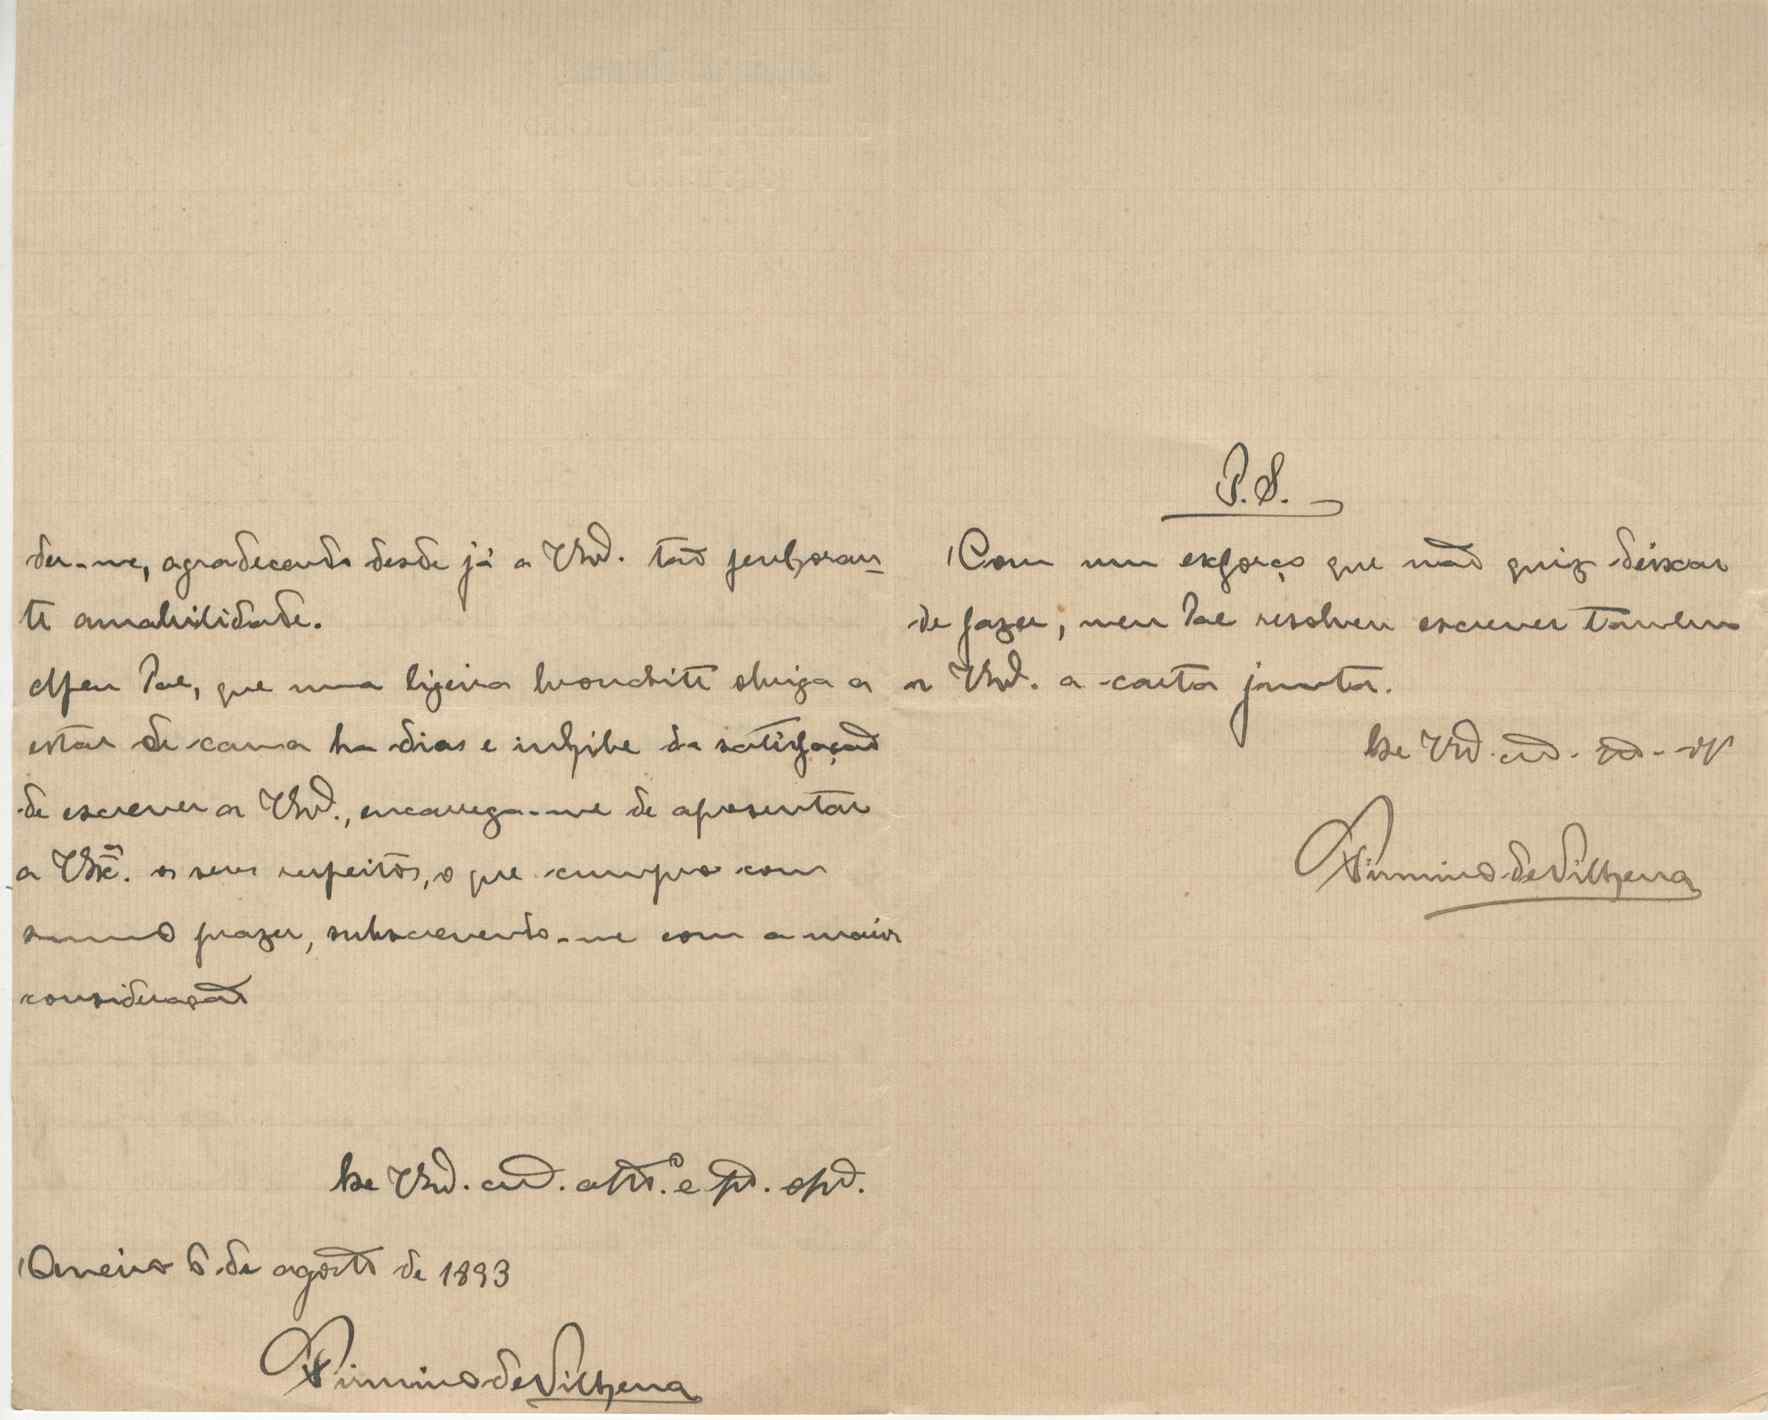 der-me, agradecendo desde já a V. tão penhoran-
te amabilidade.
Meu Pae, que uma ligeira bronchite obriga a
estar de cama ha dias e inhibe da satisfação
de escrever a V., encarrega-me de apresentar
a V. os seus respeitos, o que cumpro com
summo prazer, subscrevendo-me com a maior
consideração
De V. crd. att.º e
Aveiro 6 de agosto de 1893
Firmino de Vilhena
P.S.
Com um exforço que não quiz deixar
de fazer, meu Pae resolveu escrever tambem
a V. a carta junta.
De V. crd.
Firmino de Vilhena